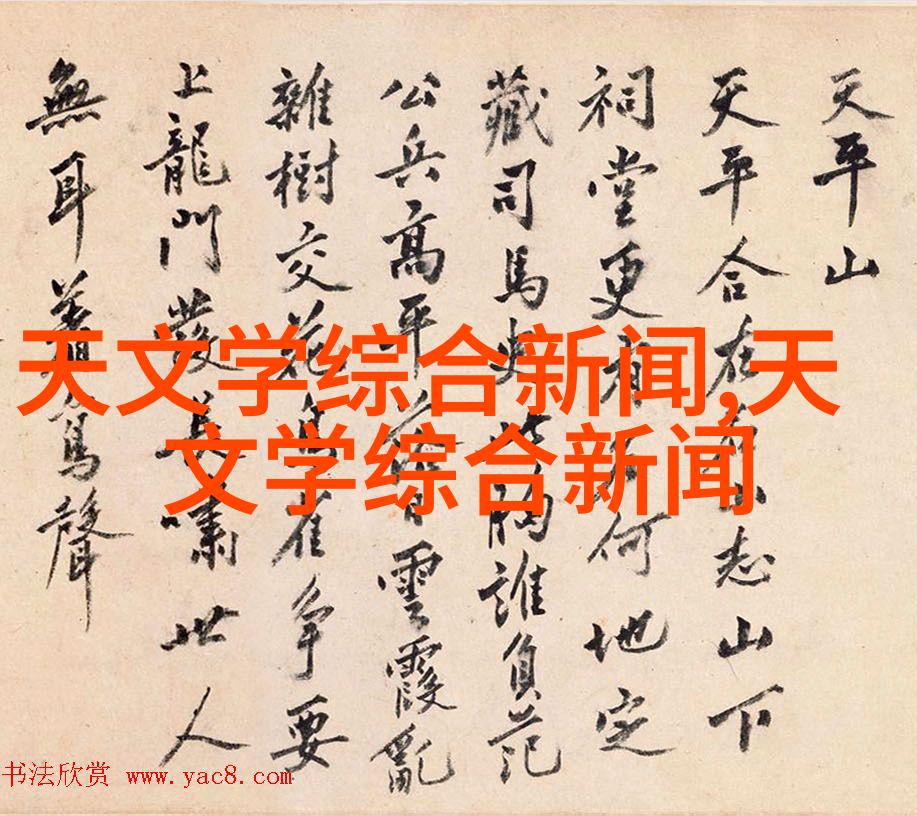 天平山
天平合在山志山下
祠堂更有何地定
藏司馬史胸誰負范
公兵高平雲霞亂
雜樹交花鳥雀争要
上龍門發長嘯世人
無耳着鸞聲
天文学综合新闻,天
文学综合新闻
书法欣赏 www.yac8.com